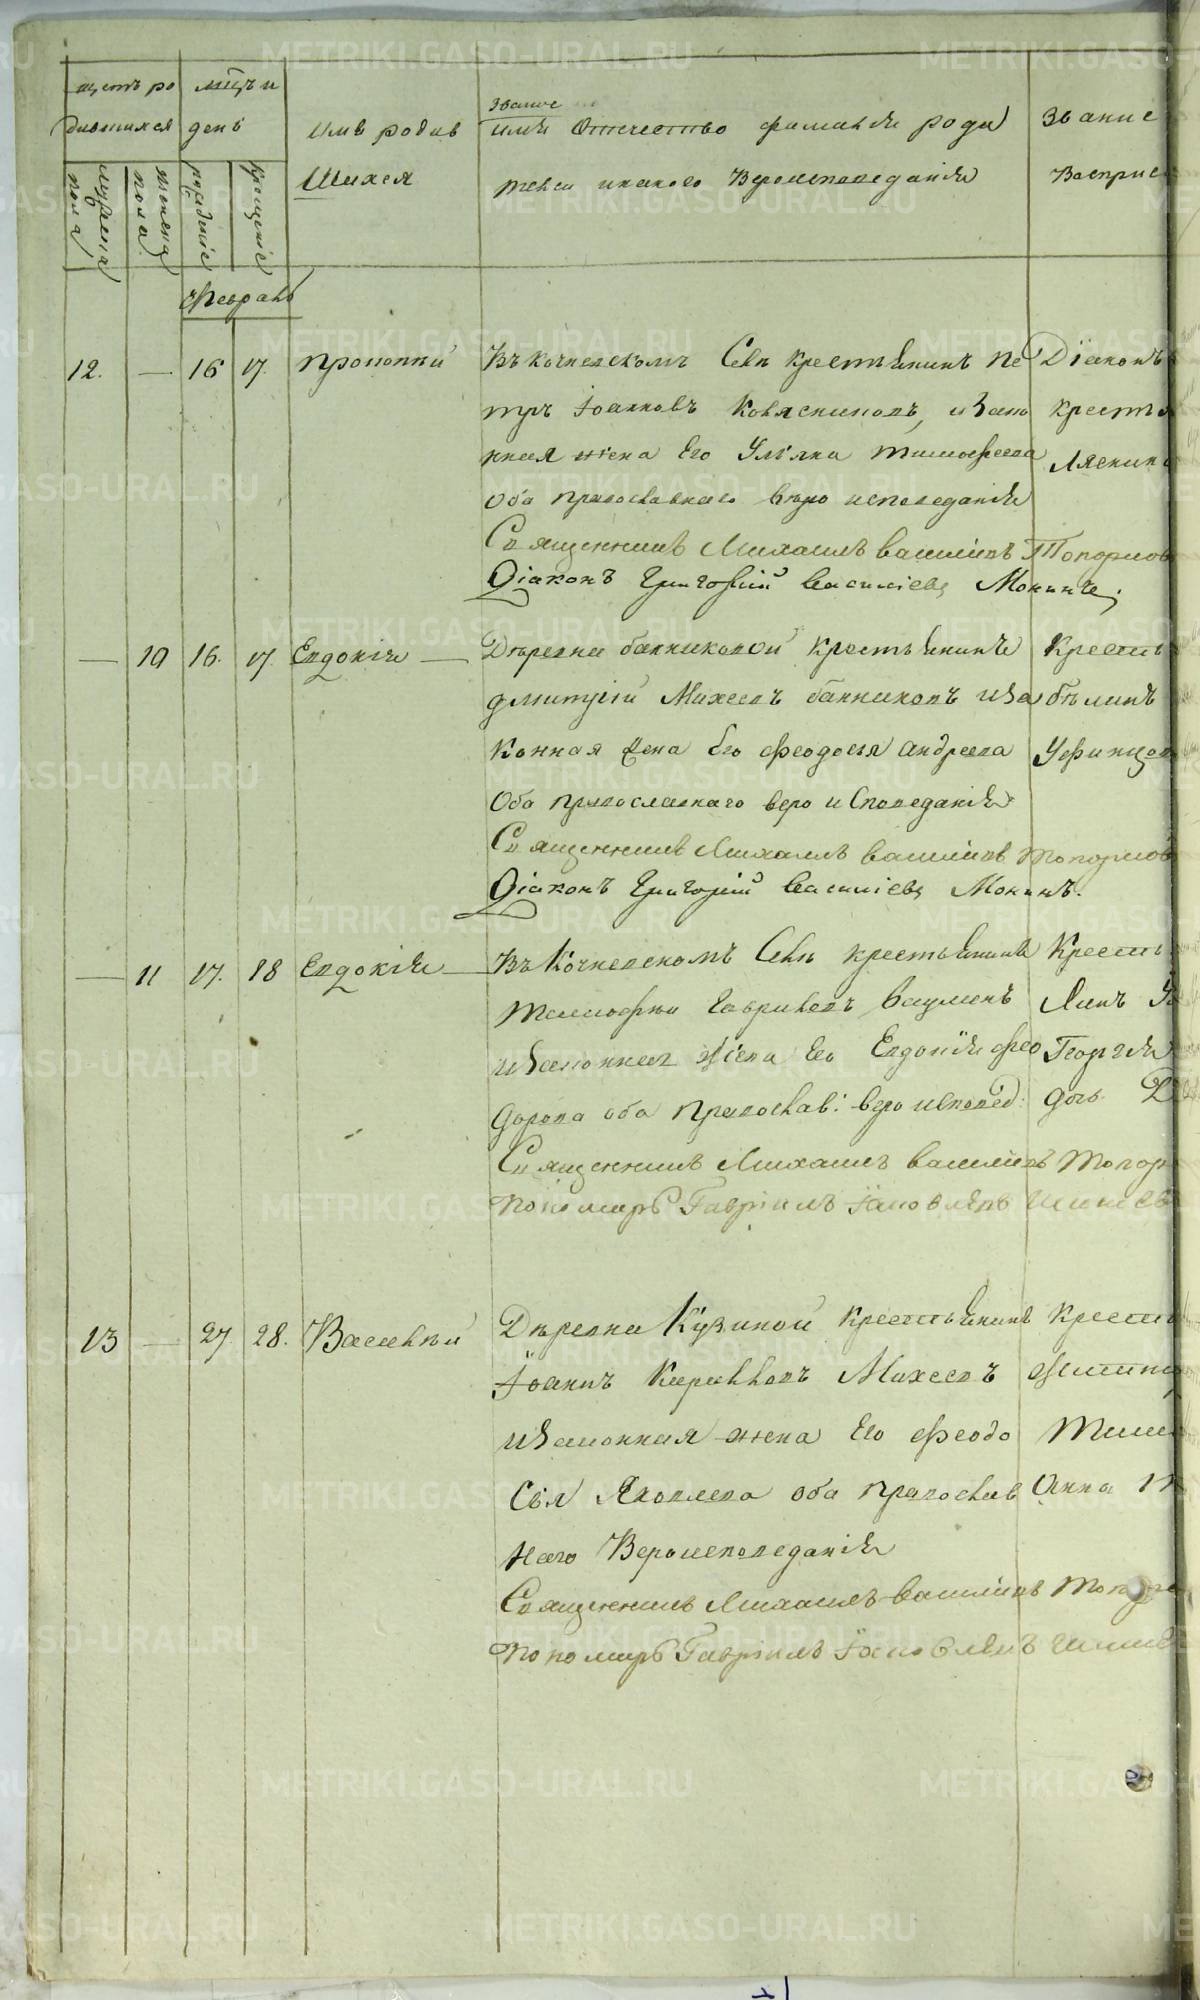 METRIKI.GASO-URAL.RU
щетъ ро
дившихся
мцъ и
день
имѣ родив
шихся
званіе
имя отечество фамилія роди
телей и какого вероисповеданія
званіе
воспрıе
мужеска пола
женска пола
рожденіе
крещеніе
Февраль
12. — 16 17. Прокопий
Въ Кочневскомъ Селѣ крестьянинъ Пе
тръ Іоанновъ и Зако
нная жена Его Ульяна Тимофеева
оба православнаго вѣро исповеданія
Священникъ Михаилъ Василіевъ Топорков
Діаконъ Григорій Василіевъ Мокинъ
Діаконъ
крестья
— 10 16. 17. Евдокія —
Дѣревни Банниковой крестьянинъ
Дмитрій Михеевъ Банниковъ и За
конная жена Его Феодосья Андреева
Оба православнаго веро и споведанія
Священникъ Михаилъ Василіевъ Топорков
Діаконъ Григорій Василіевъ Мокинъ.
Кресть
Уфинцов
— 11 17. 18 Евдокія —
Въ Кочневскомъ Селѣ крестьянинъ
Тимофей Гавриловъ
и Законная жена Его Евдокія Фео
дорова оба Православ: веро исповед:
Священникъ Михаилъ Василіевъ Топор
Пономарь Гавріилъ Іаковлевъ
Кресть
Георгія
дочь
13 — 27. 28. Василій
Дѣревни Кузиной Крестьянинъ
Іоаннъ Кириловъ Михеевъ
и Законная жена Его Феодо
сія Яковлева оба Православ
наго Вероисповеданія
Священникъ Михаилъ Василіевъ Топор
Пономарь Гавріилъ Іаковлевъ
Кресть
Анна